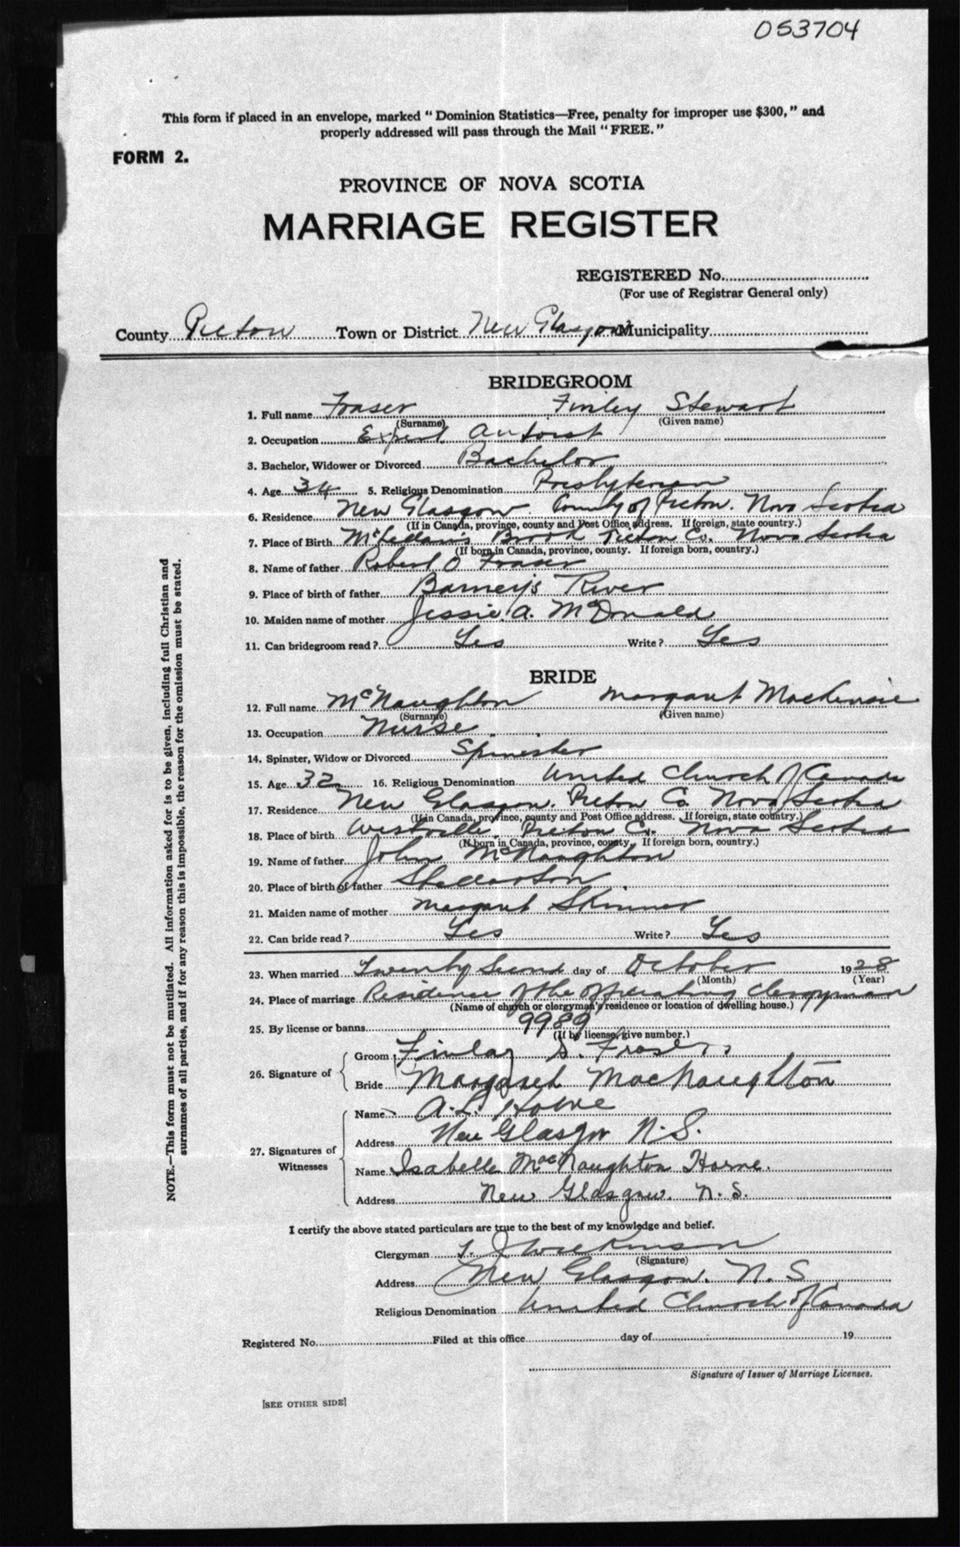 053704
This form if placed in an envelope, marked "Dominion Statistics—Free, penalty for improper use $300," and
properly addressed will pass through the Mail "FREE."
FORM 2.
PROVINCE OF NOVA SCOTIA
MARRIAGE REGISTER
REGISTERED No.
(For use of Registrar General only)
County Pictou Town or District New Glasgow Municipality
BRIDEGROOM
1. Full name Fraser Finley Stewart
(Surname) (Given name)
2. Occupation Expert
3. Bachelor, Widower or Divorced Bachelor
4. Age 34 5. Religious Denomination Presbyterian
6. Residence New Glasgow County of Pictou. Nova Scotia
(If in Canada, province, county and Post Office address. If foreign, state country.)
7. Place of Birth McLellan's Brook Pictou Co. Nova Scotia
(If born in Canada, province, county. If foreign born, country.)
8. Name of father Robert O Fraser
9. Place of birth of father Barney's River
10. Maiden name of mother Jessie A. McDonald
11. Can bridegroom read? Yes Write? Yes
BRIDE
12. Full name McNaughton Margaret Mackenzie
(Surname) (Given name)
13. Occupation Nurse
14. Spinster, Widow or Divorced Spinster
15. Age 32 16. Religious Denomination United Church of Canada
17. Residence New Glasgow. Pictou Co Nova Scotia
(If in Canada, province, county and Post Office address. If foreign, state country.)
18. Place of birth Westville Pictou Co. Nova Scotia
(If born in Canada, province, county. If foreign born, country.)
19. Name of father John McNaughton
20. Place of birth of father Stellarton
21. Maiden name of mother Margaret Skinner
22. Can bride read? Yes Write? Yes
23. When married Twenty Second day of October 1928
(Month) (Year)
24. Place of marriage Residence of the officiating clergyman
(Name of church or clergyman's residence or location of dwelling house.)
25. By license or banns 9989
(If by license, give number.)
26. Signature of
Groom Finlay S. Fraser
Bride Margaret MacNaughton
27. Signatures of Witnesses
Name A. L. Horne
Address New Glasgow N.S.
Name Isabelle MacNaughton Horne.
Address New Glasgow. N.S.
I certify the above stated particulars are true to the best of my knowledge and belief.
Clergyman T. J. Wilkinson
(Signature)
Address New Glasgow. N.S
Religious Denomination United Church of Canada
Registered No. Filed at this office day of 19
Signature of Issuer of Marriage Licenses.
[SEE OTHER SIDE]
NOTE.—This form must not be mutilated. All information asked for is to be given, including full Christian and
surnames of all parties, and if for any reason this is impossible, the reason for the omission must be stated.